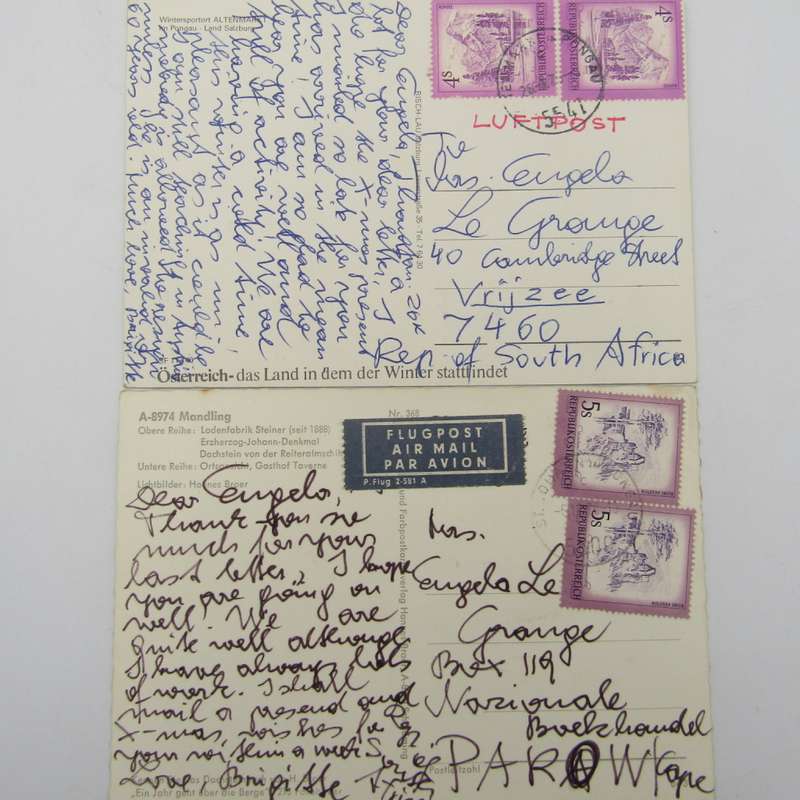 Wintersportort ALTENMARKT
im Pongau - Land Salzburg
Dear Engela,
Thank you a
lot for your dear letter, I
do hope the X-mas present
I mailed so late for you
has arrived in the mean
time! I am so glad to
hear you are well and
full of activity! We are
having a cold time
this winter is as un-
pleasant as it could be.
I am still teaching
unless he is an invalid or
60 years old. Much love, Brigitte
4s
REPUBLIK ÖSTERREICH
4s
REPUBLIK ÖSTERREICH
5541
LUFTPOST
To
Mrs. Engela
Le Grange
40 Cambridge Street
Vrijzee
7460
Rep. of South Africa
Österreich - das Land in dem der Winter stattfindet
A-8974 Mandling
Obere Reihe: Lodenfabrik Steiner (seit 1888)
Erzherzog-Johann-Denkmal
Dachstein von der Reiteralm
Untere Reihe: Ortsansicht, Gasthof Taverne
Lichtbilder: Hannes Broer
Nr. 368
FLUGPOST
AIR MAIL
PAR AVION
P. Flug 2-581 A
5s
REPUBLIK ÖSTERREICH
5s
REPUBLIK ÖSTERREICH
Dear Engela,
Thank you so
much for your
last letter, I hope
you are going on
well! We are
quite well although
I have always lots
of work. I shall
mail a present and
X-mas wishes for
you within a week
Love Brigitte
Mrs.
Engela Le
Grange
Box 119
Nazionale
Boekhandel
PAROW Cape
Postleitzahl
"Ein Jahr geht über die Berge"